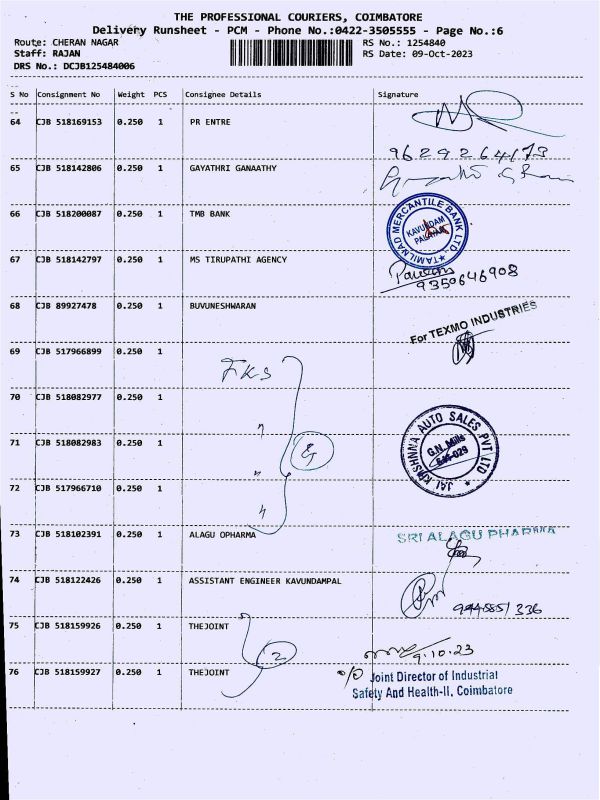 THE PROFESSIONAL COURIERS, COIMBATORE
Delivery Runsheet - PCM - Phone No.:0422-3505555 - Page No.:6
Route: CHERAN NAGAR RS No.: 1254840
Staff: RAJAN RS Date: 09-Oct-2023
DRS No.: DCJB125484006
S No Consignment No Weight PCS Consignee Details Signature
64 CJB 518169153 0.250 1 PR ENTRE
9629264173
65 CJB 518142806 0.250 1 GAYATHRI GANAATHY
66 CJB 518200087 0.250 1 TMB BANK
TAMILNAD MERCANTILE BANK LTD.
KAVUNDAM
PALAYAM
67 CJB 518142797 0.250 1 MS TIRUPATHI AGENCY
9359646908
68 CJB 89927478 0.250 1 BUVUNESHWARAN
For TEXMO INDUSTRIES
69 CJB 517966899 0.250 1
JKS
70 CJB 518082977 0.250 1
71 CJB 518082983 0.250 1
JAI KRISHNAA AUTO SALES PVT LTD
G.N. Mills
641-029
72 CJB 517966710 0.250 1
73 CJB 518102391 0.250 1 ALAGU OPHARMA
SRI ALAGU PHARMA
74 CJB 518122426 0.250 1 ASSISTANT ENGINEER KAVUNDAMPAL
75 CJB 518159926 0.250 1 THEJOINT
2
9.10.23
76 CJB 518159927 0.250 1 THEJOINT
o/o Joint Director of Industrial
Safety And Health-II, Coimbatore